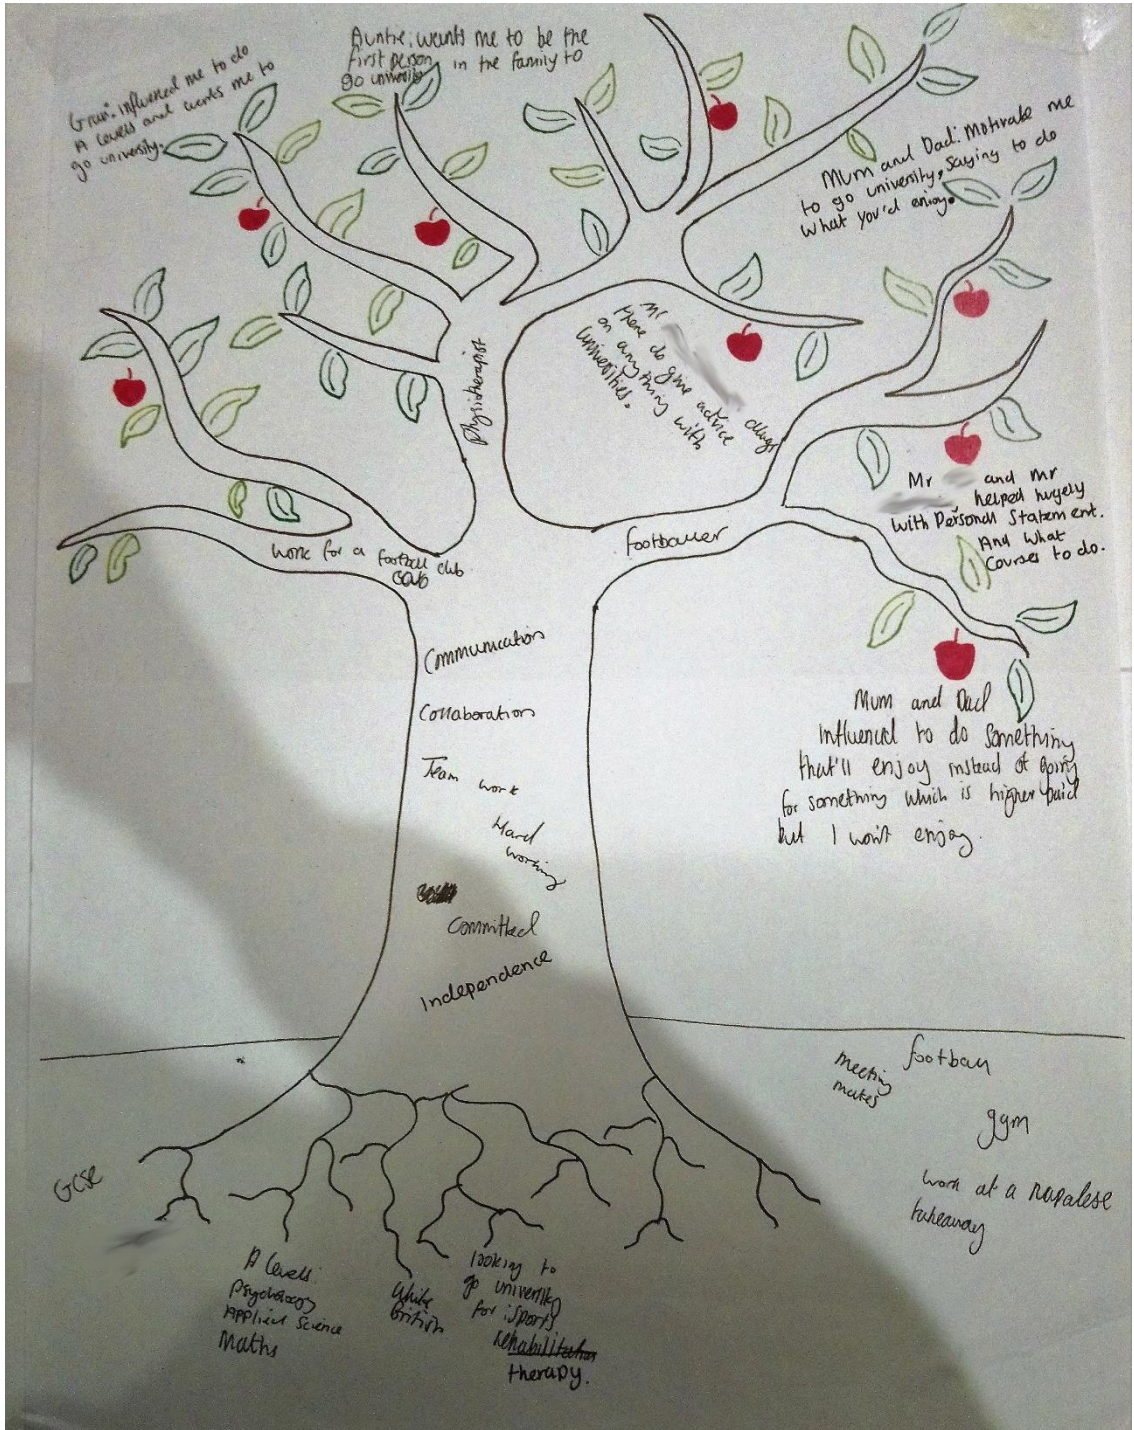 Gran: influenced me to do
A levels and wants me to
go university.
Auntie: wants me to be the
first person in the family to
go university
Mum and Dad: Motivate me
to go university, saying to do
what you'd enjoy.
Physiotherapist
Mr
there do give advice
on anything with
universities.
Mr and Mr
helped hugely
with Personal Statement.
And what
courses to do.
work for a football club
footballer
Mum and Dad
influenced to do something
that'll enjoy instead of going
for something which is higher paid
but I won't enjoy.
Communication
Collaboration
Team work
Hard
working
Committed
Independence
football
meeting
mates
gym
work at a Napalese
takeaway
GCSE
A levels:
Psychology
Applied Science
Maths
White
British
looking to
go university
for sports
rehabilitation
therapy.